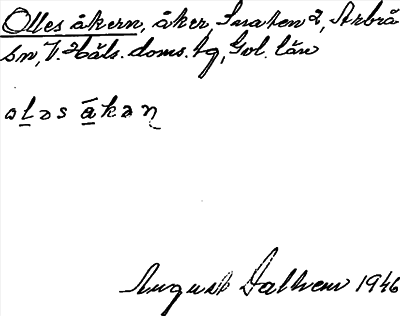 Olles åkern, åker, Snaten 2, Arbrå
sn, V. Häls. doms. tg, Gvl. län
ol̲əs å̲kəɳ
August Dalhem 1946